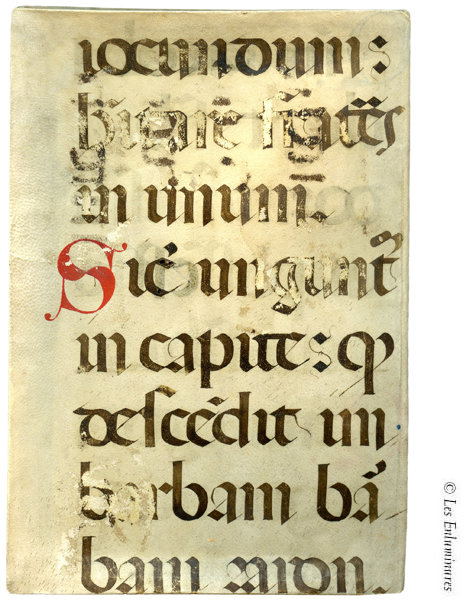 iocundum:
hitare fratres
in unum.
Sic̄ ungunt̄
in capite: q
descēdit in
barbam bā
bam aaron.
© Les Enluminures